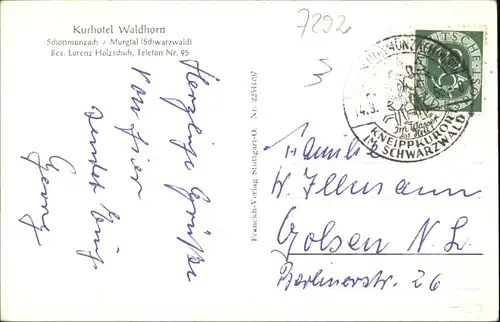 Kurhotel Waldhorn
Schönmünzach / Murgtal (Schwarzwald)
Bes. Lorenz Holzschuh, Telefon Nr. 95
7292
Herzliche Grüße
von hier
sendet Euch
Georg
Franckh-Verlag Stuttgart-O. Nr. 22541/97
DEUTSCHE
Im Wasser
das Heil
KNEIPPKURORT
IM SCHWARZWALD
Familie
W. Illmann
Golsen N. L.
Berlinerstr. 26